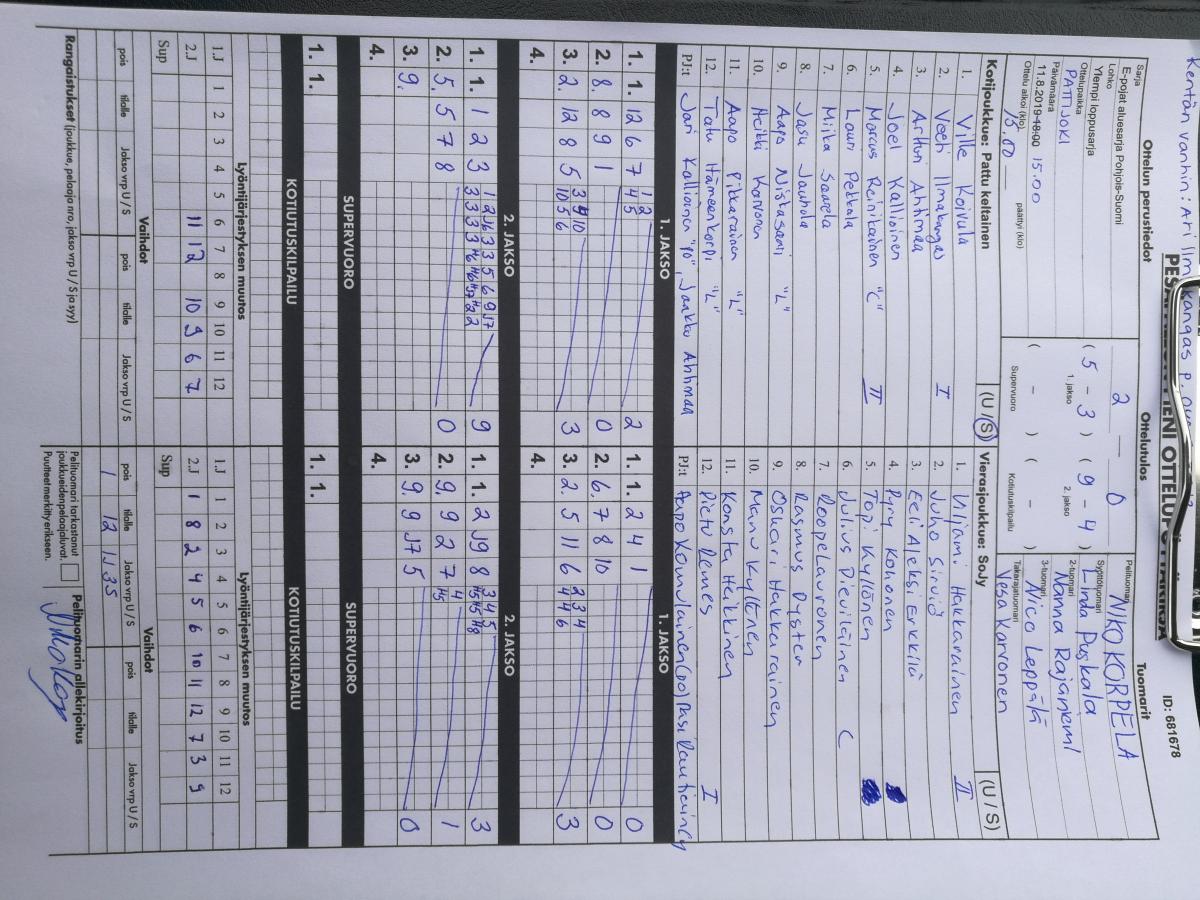 Kentän vanhin: Ari Ilmakangas
ID: 681678
Ottelun perustiedot
Sarja
E-pojat aluesarja Pohjois-Suomi
Lohko
Ylempi loppusarja
Ottelupaikka
PATTIJOKI
Päivämäärä
11.8.2019 18:00 15.00
Ottelu alkoi (klo) päättyi (klo)
15.00
Ottelutulos
2 — 0
(5 - 3) (9 - 4)
1. jakso 2. jakso
( - ) ( - )
Supervuoro Kotiutuskilpailu
Tuomarit
Pelituomari
NIKO KORPELA
Syöttötuomari
Linda Puskala
2-tuomari
Nanna Rajaniemi
3-tuomari
Aico Leppälä
Takarajatuomari
Vesa Karvonen
Kotijoukkue: Pattu keltainen (U / S)
1. Ville Koivula
2. Veeti Ilmakangas I
3. Arttu Ahtimaa
4. Joel Kallioinen
5. Marcus Reinikainen "C" II
6. Lauri Pekkala
7. Miika Saarela
8. Jasu Jauhola
9. Aapo Niskasaari "L"
10. Heikki Karvonen
11. Aapo Pikkarainen "L"
12. Tatu Hämeenkorpi "L"
PJ:t Jari Kallioinen "PJ", Jaakko Ahtimaa
Vierasjoukkue: SoJy (U / S)
1. Viljami Hakkarainen II
2. Juho Sirviö
3. Eeli Aleksi Erkkilä
4. Pyry Kohonen
5. Topi Kyllönen
6. Julius Pieviläinen C
7. Roope Lauronen
8. Rasmus Dyster
9. Oskari Hakkarainen
10. Manu Kyllönen
11. Konsta Heikkinen
12. Pietu Remes I
PJ:t Aapo Komulainen (PJ) Pasi
1. JAKSO 1. JAKSO
1. 1. 12 6 7 1 2 4 5 2
2. 8. 8 9 1 0
3. 2. 12 8 5 3
4.
1. 1. 2 4 1 0
2. 6. 7 8 10 0
3. 2. 5 11 6 2 3 4 4 4 6 3
4.
2. JAKSO 2. JAKSO
1. 1. 1 2 3 9
2. 5. 5 7 8 0
3. 9.
4.
1. 1. 2 J9 8 3 4 5 3
2. 9. 9 2 7 4 H5 1
3. 9. 9 J7 5 0
4.
SUPERVUORO SUPERVUORO
1. 1.
1. 1.
KOTIUTUSKILPAILU KOTIUTUSKILPAILU
Lyöntijärjestyksen muutos
1 2 3 4 5 6 7 8 9 10 11 12
1.J
2.J 11 12 10 9 6 7
Sup
Lyöntijärjestyksen muutos
1 2 3 4 5 6 7 8 9 10 11 12
1.J
2.J 1 8 2 4 5 6 10 11 12 7 3 9
Sup
Vaihdot
pois tilalle Jakso vrp U / S pois tilalle Jakso vrp U / S
Vaihdot
pois tilalle Jakso vrp U / S pois tilalle Jakso vrp U / S
1 12
Rangaistukset (joukkue, pelaaja nro, jakso vrp U / S ja syy)
Pelituomari tarkastanut
joukkueiden pelaajaluvat.
Puutteet merkitty erikseen.
Pelituomarin allekirjoitus